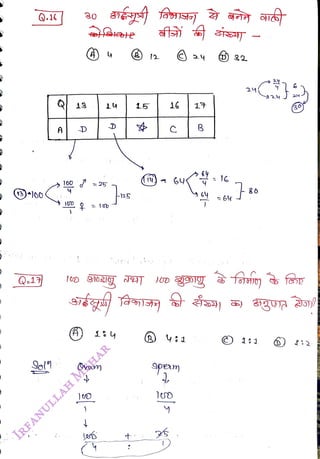 Q.16 30 अर्द्धसूत्री विभाजन से बनने वाली
बीजों की संख्या -
(A) 4 (B) 12 (C) 24 (D) 32
24 24/4 6
24 30
Q 13 14 15 16 17
A D D ☆ C B
(13) → 100 100/4 ♂ = 25
100/1 ♀ = 100
125
(14) → 64 64/4 = 16
64/1 = 64
80
Q.17 100 अण्डाणु तथा 100 शुक्राणु के निर्माण के लिए
अर्द्धसूत्री विभाजन की संख्या का अनुपात होगा
(A) 1:4 (B) 4:1 (C) 1:1 (D) 1:2
Sol^n Ovum Sperm
↓ ↓
100/1 100/4
↓
100 + 25
4 : 1
IRFANULLAH MAHAR